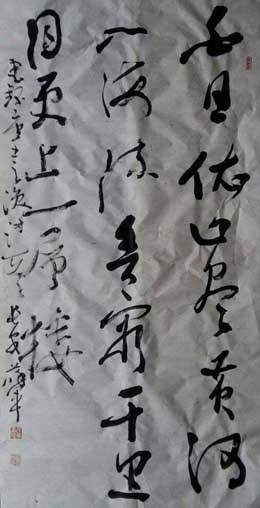 白日依山尽黄河
入海流欲窮千里
目更上一層樓
唐王之涣诗